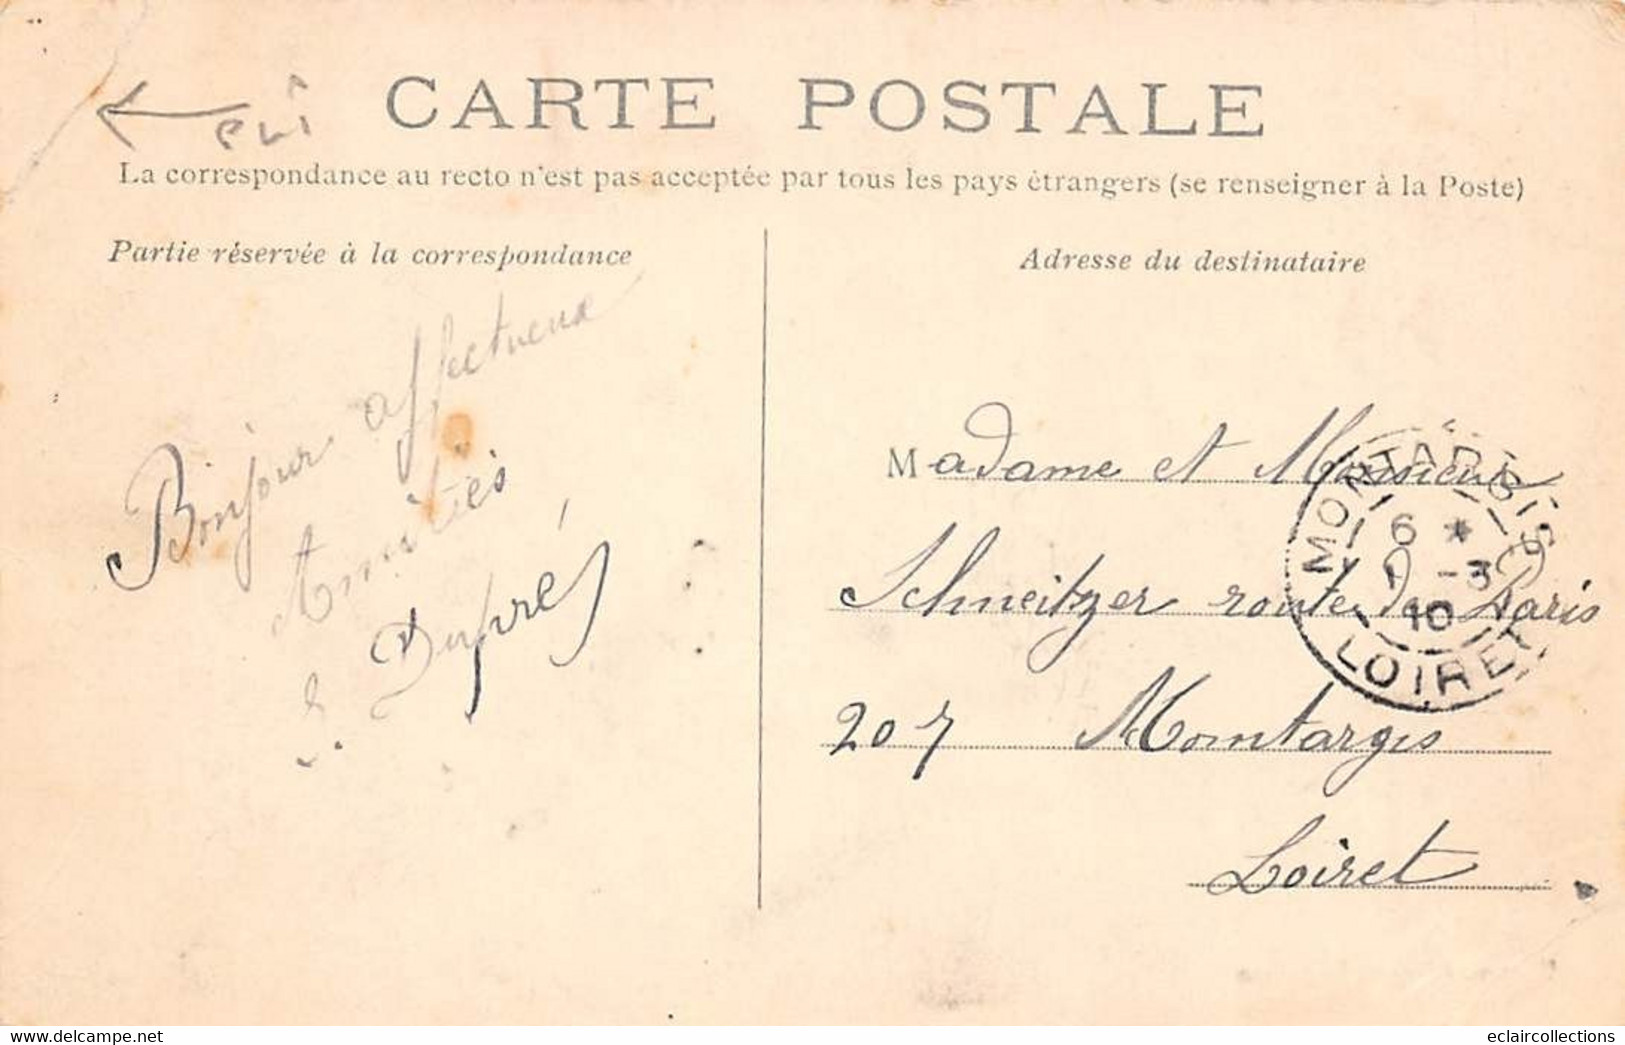 CARTE POSTALE
pli
La correspondance au recto n'est pas acceptée par tous les pays étrangers (se renseigner à la Poste)
Partie réservée à la correspondance
Bonjour affectueux
Amitiés
Dupré
Adresse du destinataire
Madame et Monsieur
Schneitzer route de Paris
207 Montargis
Loiret
MONTARGIS
6 *
1 -3
10
LOIRET
www.delcampe.net
eclaircollections